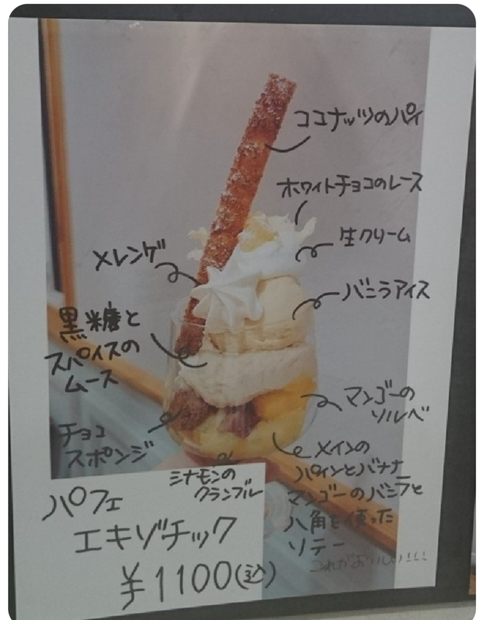 ココナッツのパイ
ホワイトチョコのレース
生クリーム
メレンゲ
バニラアイス
黒糖と
スパイスの
ムース
マンゴーの
ソルベ
チョコ
スポンジ
シナモンの
クランブル
メインの
パインとバナナ
マンゴーのバニラと
八角を使った
ソテー
これがおいしい!!!
パフェ
エキゾチック
¥1100(込)